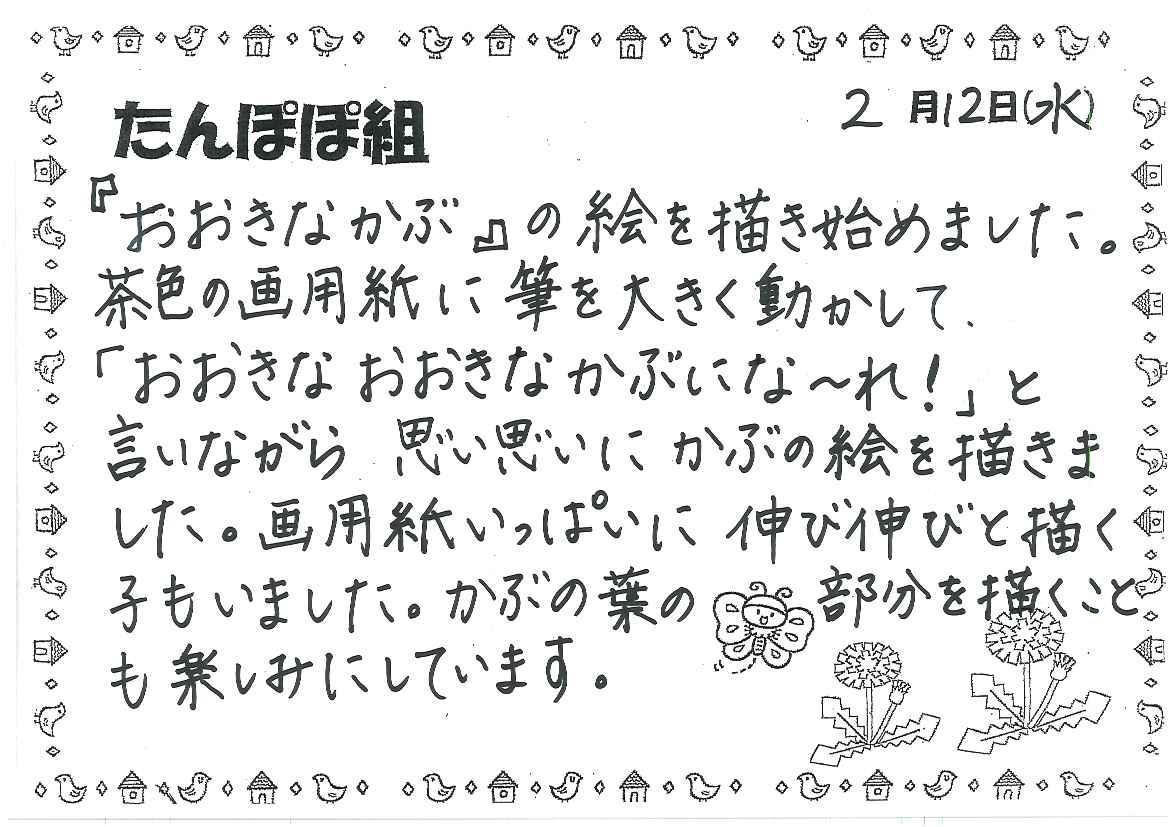 たんぽぽ組
2月12日(水)
『おおきなかぶ』の絵を描き始めました。
茶色の画用紙に筆を大きく動かして、
「おおきな おおきなかぶにな〜れ！」と
言いながら 思い思いに かぶの絵を描きま
した。画用紙いっぱいに 伸び伸びと描く
子もいました。かぶの葉の 部分を描くこと
も楽しみにしています。